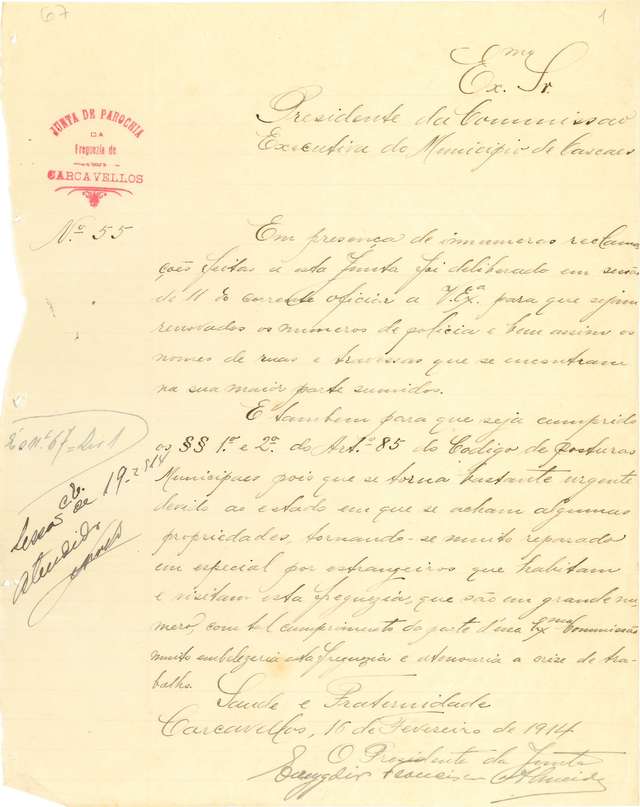 67
1
Exmº Sr.
Presidente da Commissao
Executiva do Municipio de Cascaes
JUNTA DE PAROCHIA
DA
Freguezia de
CARCAVELLOS
Nº 55
Em presença de innumeras reclama
ções feitas a esta Junta foi deliberado em sessão
de 11 do corrente oficiar a V. Exª para que sejam
renovados os numeros de policia e bem assim os
nomes de ruas e travessas que se encontram
na sua maior parte sumidos.
E tambem para que seja cumprido
os §§ 1º e 2º do Artº 85 do Codigo de Posturas
Municipaes pois que se torna bastante urgente
devido ao estado em que se acham algumas
propriedades, tornando-se muito reparado
em especial por estrangeiros que habitam
e visitam esta freguezia, que são em grande nu
mero, com tal cumprimento da parte d'essa Exma Commissão
muito embelezaria esta freguezia e atenuaria a crize de tra-
balho.
Saude e Fraternidade
Carcavellos, 16 de Fevereiro de 1914
O Presidente da Junta
Francisco Almeida
Nº 67
de 19-2-914
Atendido